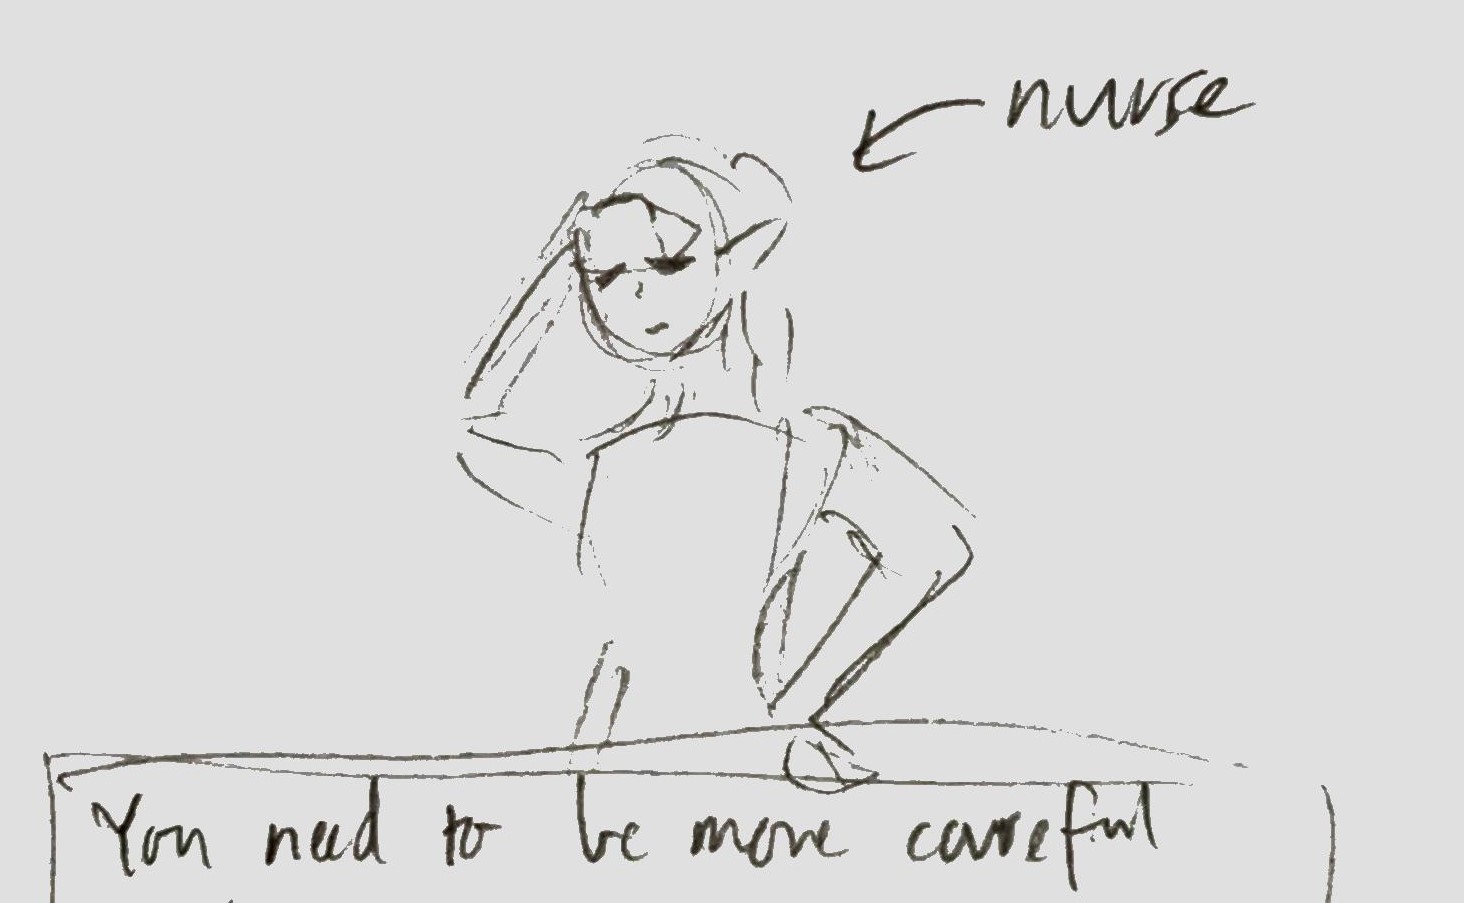 nurse
You need to be more careful